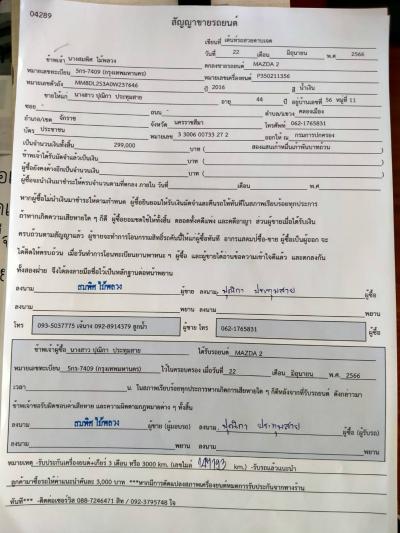 04289
สัญญาขายรถยนต์
เขียนที่ เต้นท์รถสวยตามบาเจต
วันที่ 22 เดือน มิถุนายน พ.ศ. 2566
ข้าพเจ้า นางสมพิศ ไม้พลวง ตกลงขายรถยนต์ MAZDA 2
หมายเลขทะเบียน 5กร-7409 (กรุงเทพมหานคร) หมายเลขเครื่องยนต์ P350211356
หมายเลขตัวถัง ปี 2016 สี น้ำเงิน
ขายให้แก่ นางสาว ปุณิกา ประทุมสาย อายุ 44 ปี อยู่บ้านเลขที่ 56 หมู่ที่ 11
ซอย ถนน ตำบล/แขวง คลองเมือง
อำเภอ/เขต จักราช จังหวัด นครราชสีมา โทรศัพท์ 062-1765831
บัตร ประชาชน หมายเลข 3 3006 00733 27 2 ออกให้ ณ กรมการปกครอง
เป็นจำนวนเงินทั้งสิ้น 299,000 บาท ( สองแสนเก้าหมื่นเก้าพันบาทถ้วน )
ข้าพเจ้าได้รับมัดจำแล้วเป็นเงิน บาท ( )
ผู้ซื้อยังคงค้างอีกเป็นจำนวนเงิน บาท ( )
ผู้ซื้อจะนำเงินมาชำระให้ครบจำนวนตามที่ตกลง ภายใน วันที่ เดือน พ.ศ.
หากผู้ซื้อไม่นำเงินมาชำระให้ตามกำหนด ผู้ซื้อยินยอมให้ริบเงินมัดจำและคืนรถให้ทันทีในสภาพเรียบร้อยทุกประการ
ถ้าหากเกิดความเสียหายใด ๆ ก็ดี ผู้ซื้อยอมชดใช้ให้ทั้งสิ้น ตลอดทั้งคดีแพ่ง และคดีอาญา ส่วนผู้ขายเมื่อได้รับเงิน
ครบถ้วนตามสัญญาแล้ว ผู้ขายจะทำการโอนกรรมสิทธิ์รถคันนี้ให้แก่ผู้ซื้อทันที อากรแสตมป์ซื้อ-ขาย ผู้ซื้อเป็นผู้ออก จะ
ได้คิดให้ครบถ้วน เมื่อวันทำการโอนทะเบียนยานพาหนะ ฯ ผู้ซื้อ และผู้ขายได้อ่านข้อความเข้าใจดีแล้ว และตกลงกัน
ทั้งสองฝ่าย จึงได้ลงลายมือชื่อไว้เป็นหลักฐานต่อหน้าพยาน
ลงนาม สมพิศ ไม้พลวง ผู้ขาย ลงนาม ปุณิกา ประทุมสาย ผู้ซื้อ
ลงนาม พยาน ลงนาม พยาน
โทร 093-5037775 เจ๊นาง 092-8914379 ลูกน้ำ ผู้ขาย โทร 062-1765831 ผู้ซื้อ
ข้าพเจ้าผู้ซื้อ นางสาว ปุณิกา ประทุมสาย ได้รับรถยนต์ MAZDA 2
หมายเลขทะเบียน 5กร-7409 (กรุงเทพมหานคร) ไว้ในครอบครอง เมื่อวันที่ 22 เดือน มิถุนายน พ.ศ. 2566
เวลา น. ในสภาพเรียบร้อยทุกประการหากเกิดการเสียหายใด ๆ ก็ดีหลังจากที่รับรถยนต์ ดังกล่าวมา
ข้าพเจ้าขอรับผิดชอบค่าเสียหาย และความผิดตามกฎหมายต่าง ๆ ทั้งสิ้น
ลงนาม สมพิศ ไม้พลวง ผู้ขาย (ผู้มอบรถ) ลงนาม ปุณิกา ประทุมสาย ผู้ซื้อ (ผู้รับรถ)
ลงนาม พยาน ลงนาม พยาน
หมายเหตุ -รับประกันเครื่องยนต์+เกียร์ 3 เดือน หรือ 3000 km. (เลขไมล์ km.) -รับรถแล้วแนะนำ
ลูกค้ามาซื้อรถให้ค่าแนะนำคันละ 3,000 บาท ***หากมีการดัดแปลงสภาพเครื่องยนต์หมดการรับประกันจากทางร้าน
ทันที*** -ติดต่อเซอร์วิส 088-7246471 สิท / 092-3795748 ใจ